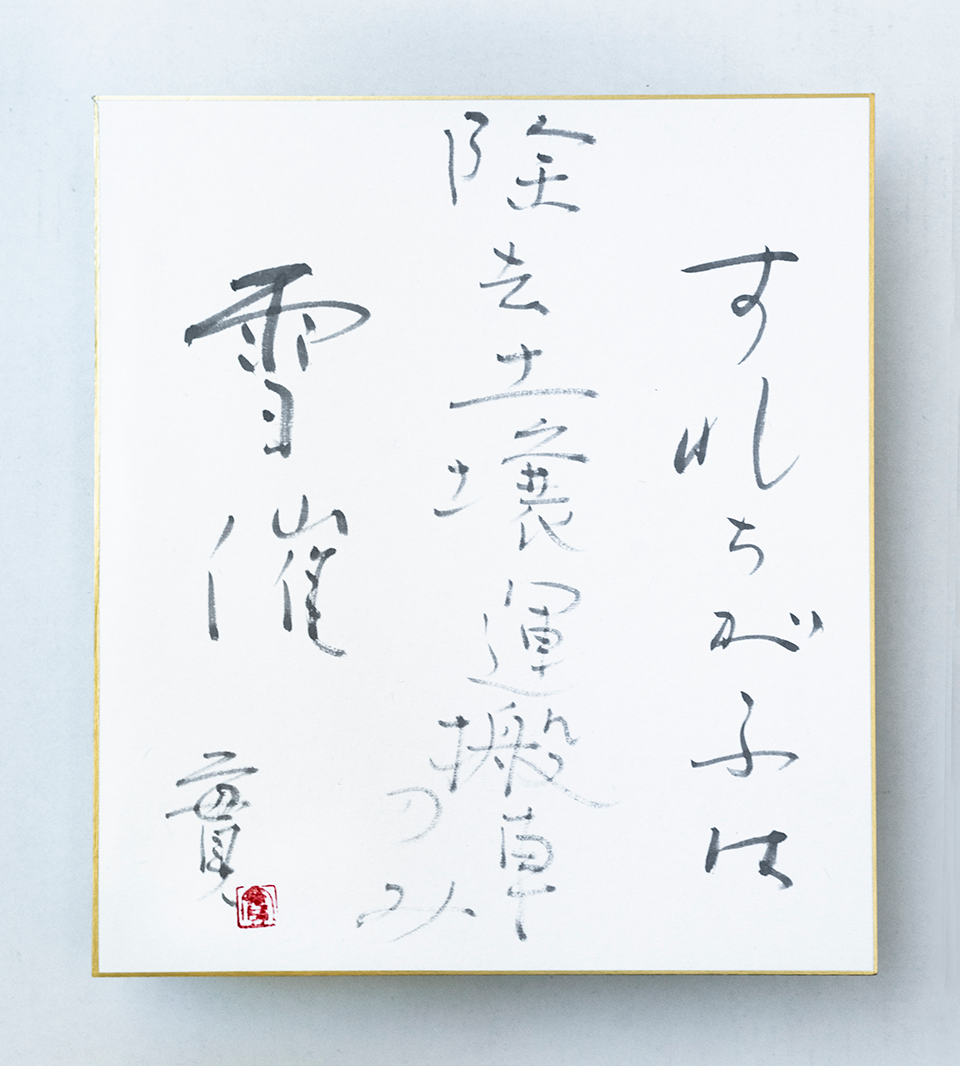 すれちがふは
除去土壌運搬車
のみ
雪催
實